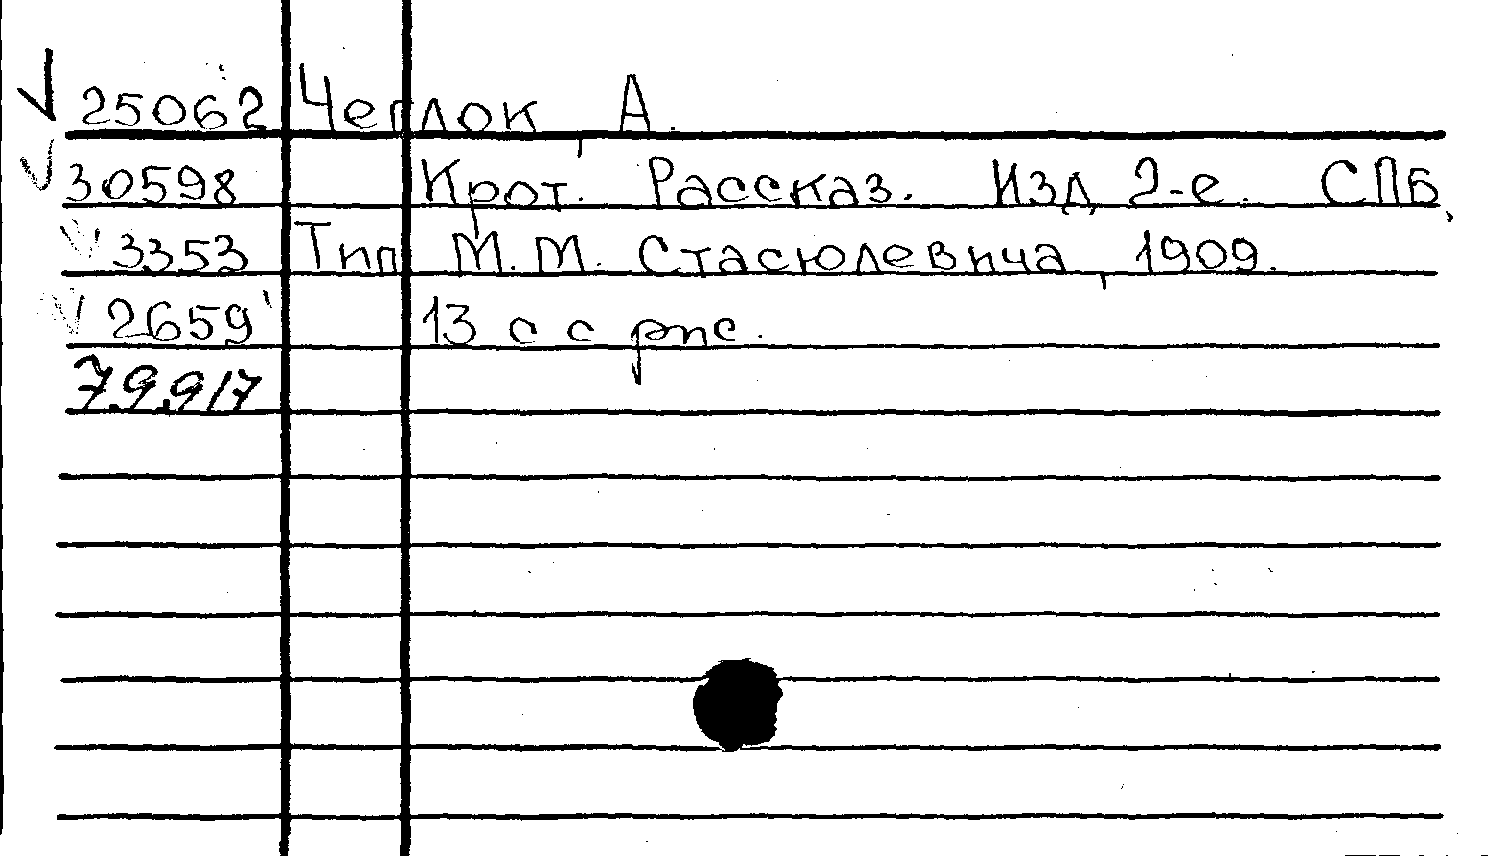 25062 Чеглок, А.
30598 Крот. Рассказ. Изд 2-е. СПБ,
3353 Тип М. М. Стасюлевича, 1909.
2659 13 с с рис.
79.917